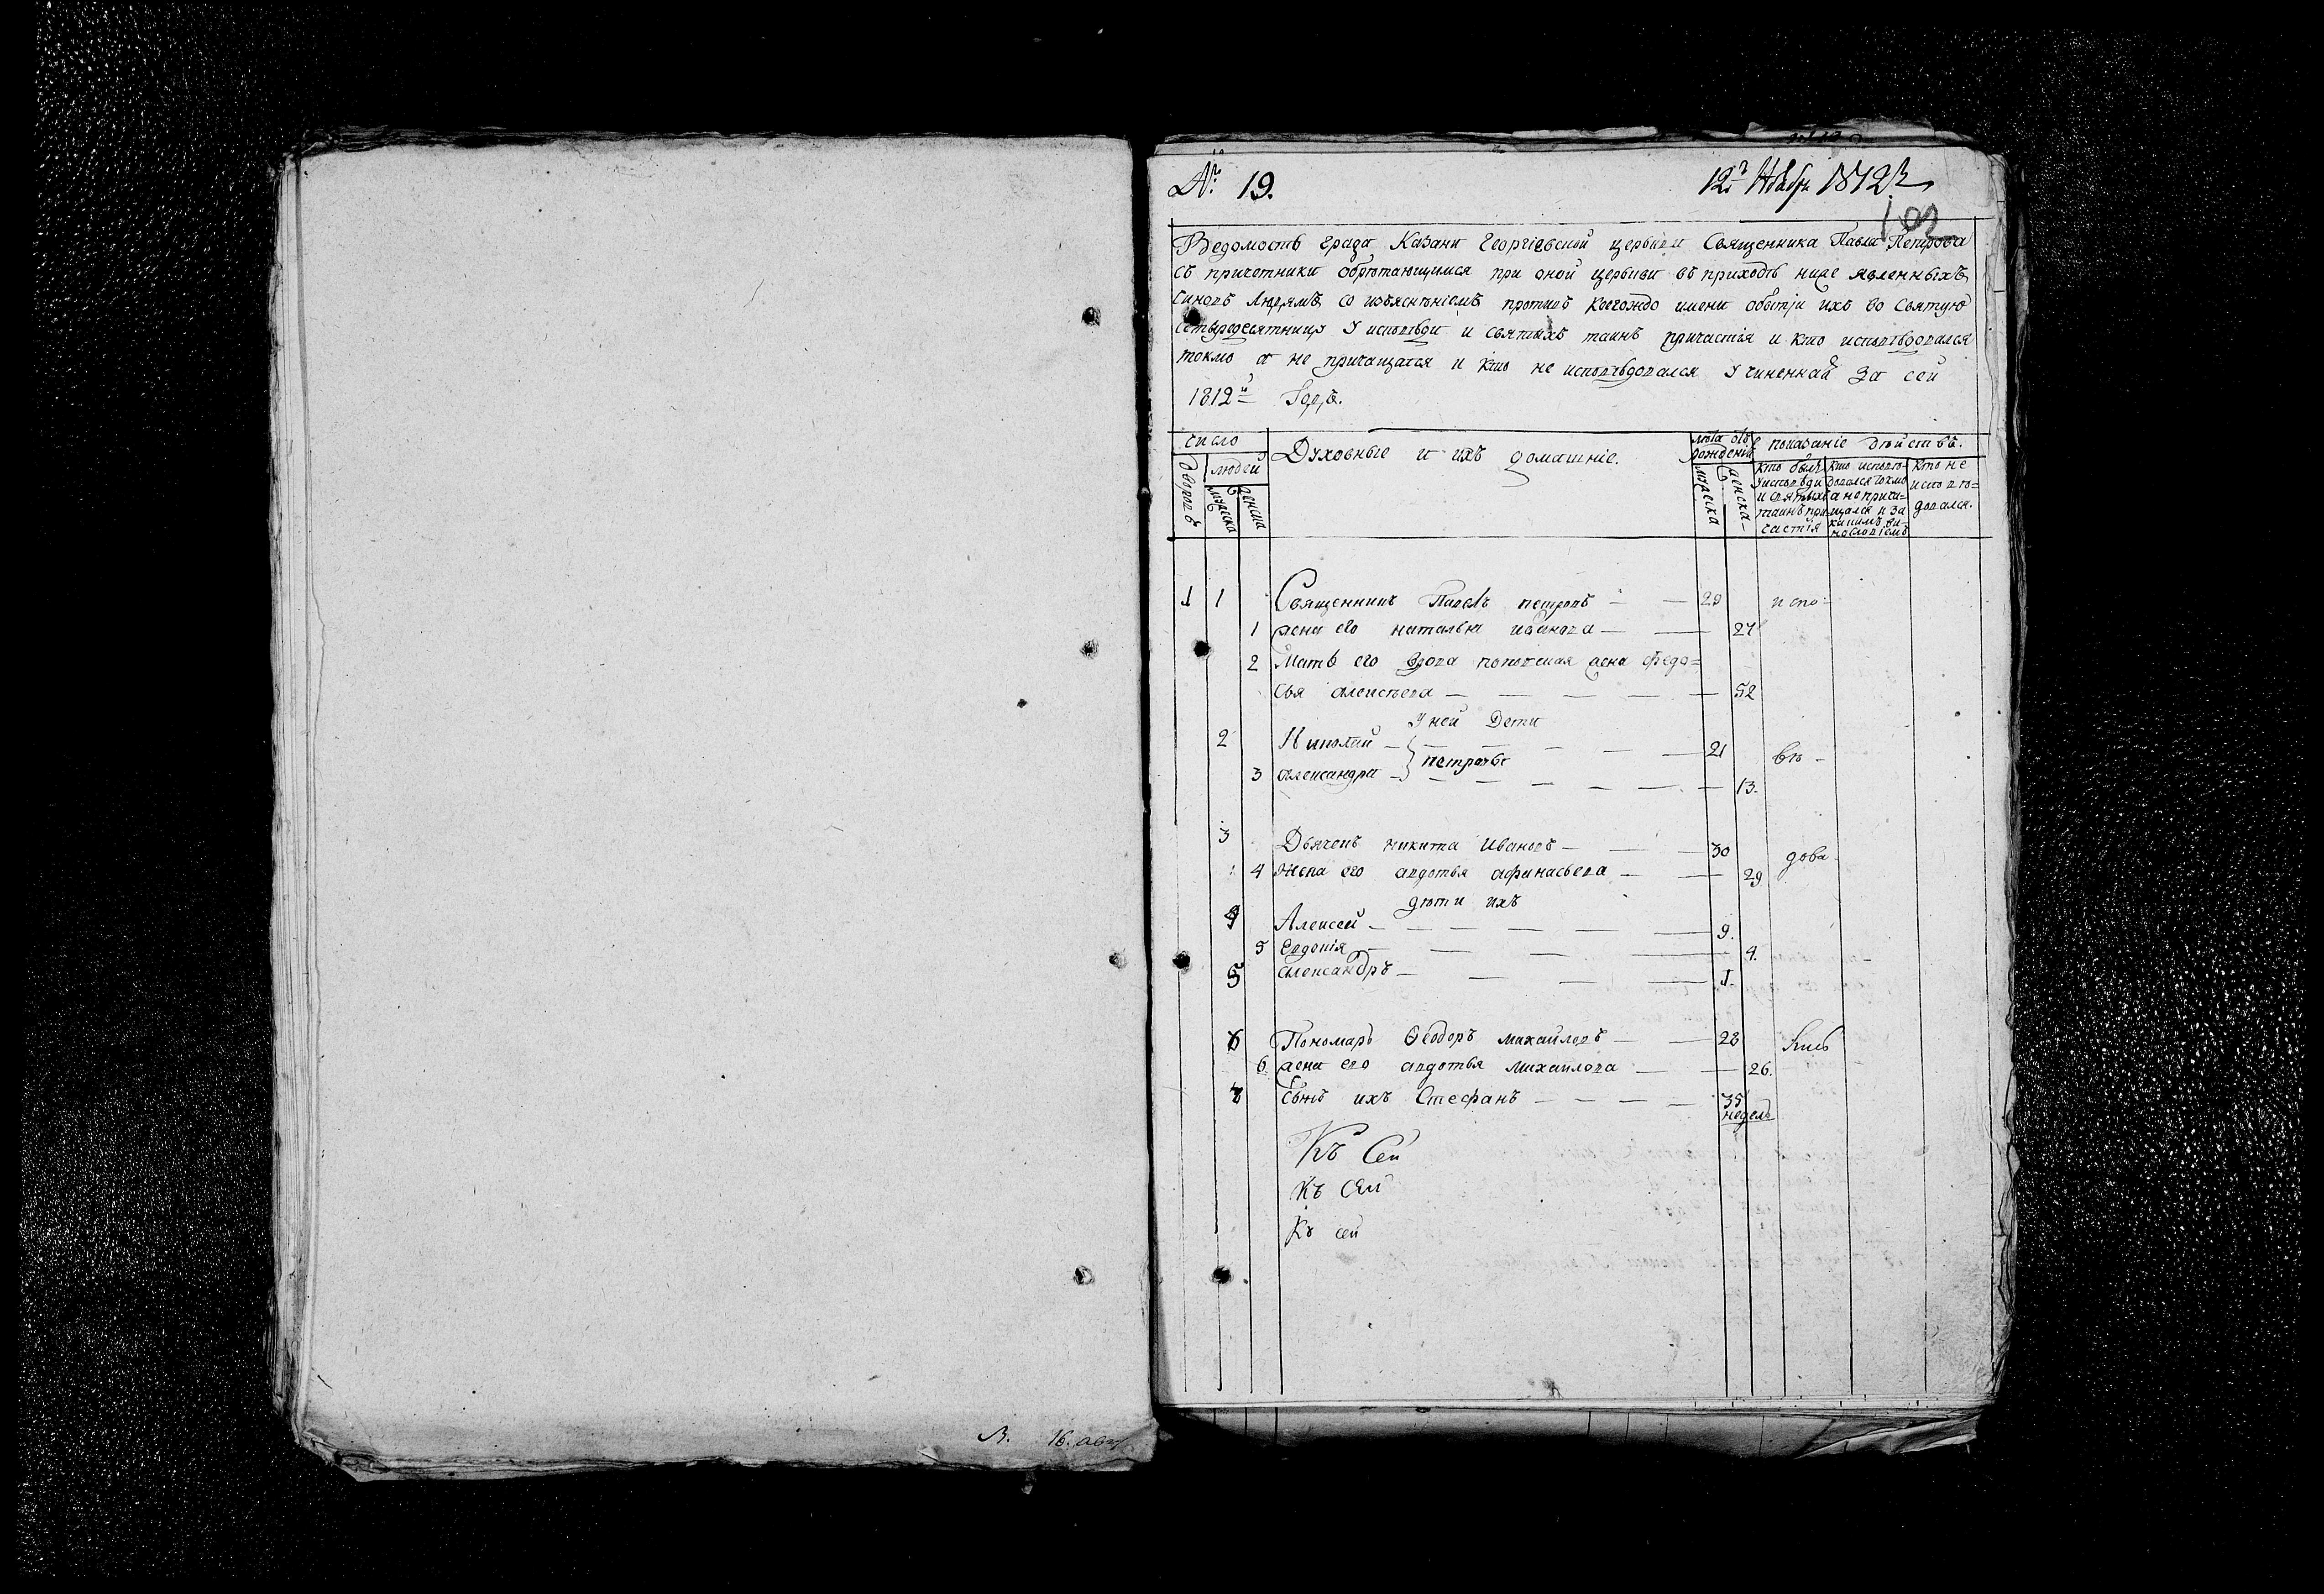 № 19.
12г Ноябр 1812
Ведомость града Казани Георгіевской церькви Священника Павла Петрова
съ причотники обрѣтающимся при оной церькви въ приходѣ ниже явленныхъ
чиновъ Людямъ со изъяснѣніемъ противъ коегождо имени о бытіи ихъ во Святую
Четыредесятницу У исповѣди и Святыхъ таинъ причастія и кто исповѣдовался
токмо а не причащался и кто не исповѣдовался Учиненная За сей
1812й Годъ.
число
Духовные и ихъ домашніе.
лѣта отъ рожденія
показаніе дѣйствъ.
дворовъ
людей
мужеска
женска
мужеска
женска
кто былъ
У исповѣди
и святыхъ
таинъ при-
частія
кто исповѣ-
довался токмо
а не прича-
щался и за
какимъ ви-
нословіемъ
кто не
исповѣ=
довался.
1 1 Священникъ Павелъ петровъ 29 испо-
1 жена его наталья иванова 27
2 Мать его вдова поповская жена Федо=
сья алексеева 52
У ней Дети
2 Николай 21 вѣ-
петровы
3 александра 13.
3 Дьячекъ никита Ивановъ 30 дова-
4 жена его авдотья афанасьева 29
дѣти ихъ
4 Алексей 9.
5 Евдокія 4.
5 александръ 1.
6 Пономарь Ѳеодоръ михайловъ 28
6 жена его авдотья михайлова 26.
7 Сынъ ихъ Стефанъ 35
недель
Къ Сей
Къ Сей
Къ сей
16. авг